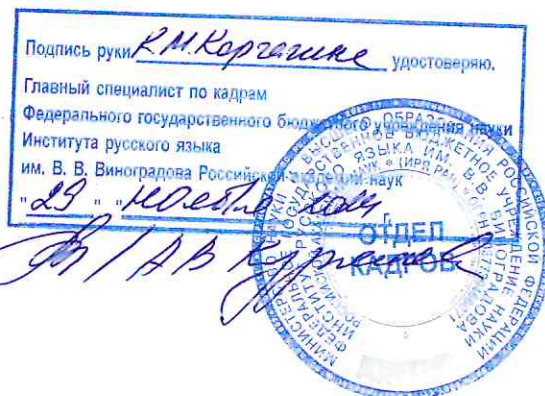 Подпись руки К.М.Корчагина удостоверяю.
Главный специалист по кадрам
Федерального государственного бюджетного учреждения науки
Института русского языка
им. В. В. Виноградова Российской академии наук
"29" "ноября 2024 г.
/ АВ
МИНИСТЕРСТВО НАУКИ И ВЫСШЕГО ОБРАЗОВАНИЯ РОССИЙСКОЙ ФЕДЕРАЦИИ
ФЕДЕРАЛЬНОЕ ГОСУДАРСТВЕННОЕ БЮДЖЕТНОЕ УЧРЕЖДЕНИЕ НАУКИ
ИНСТИТУТ РУССКОГО ЯЗЫКА ИМ. В.В. ВИНОГРАДОВА
(ИРЯ РАН)
ОТДЕЛ
КАДРОВ